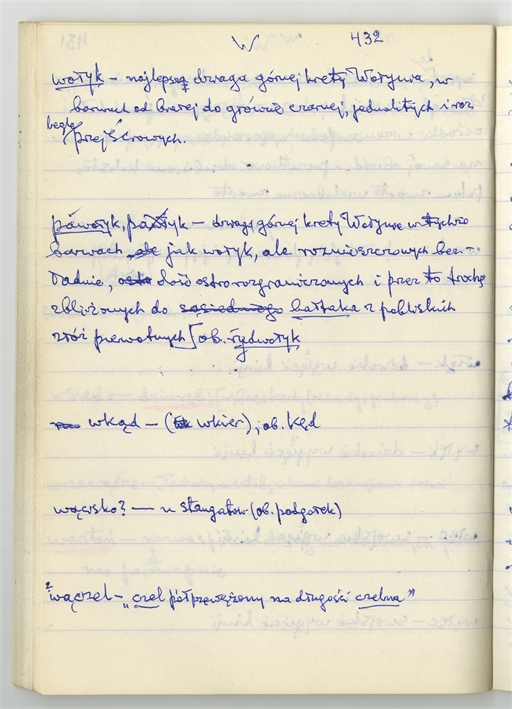 W 432
wołyk – najlepszą dwaga górnej krety Wołynia, w
barwach od białej do głównie czarnej, jednolitych i roz
begle przejściowych.
páwołyk, – dwagi górnej krety Wołynia w tychże
barwach ale jak wołyk, ale rozmieszczonych bez-
ładnie, dość ostro rozgraniczonych i przez to trochę
zbliżonych do sąsiedniego bałtaka z pobliskich
złóż pierwotnych [ob. rydwołyk
wkąd – (wkier), ob. kęd
wącisko? – u Slangałów (ob. podgorek)
wączel – „czel półprzewężony na długości czelna"